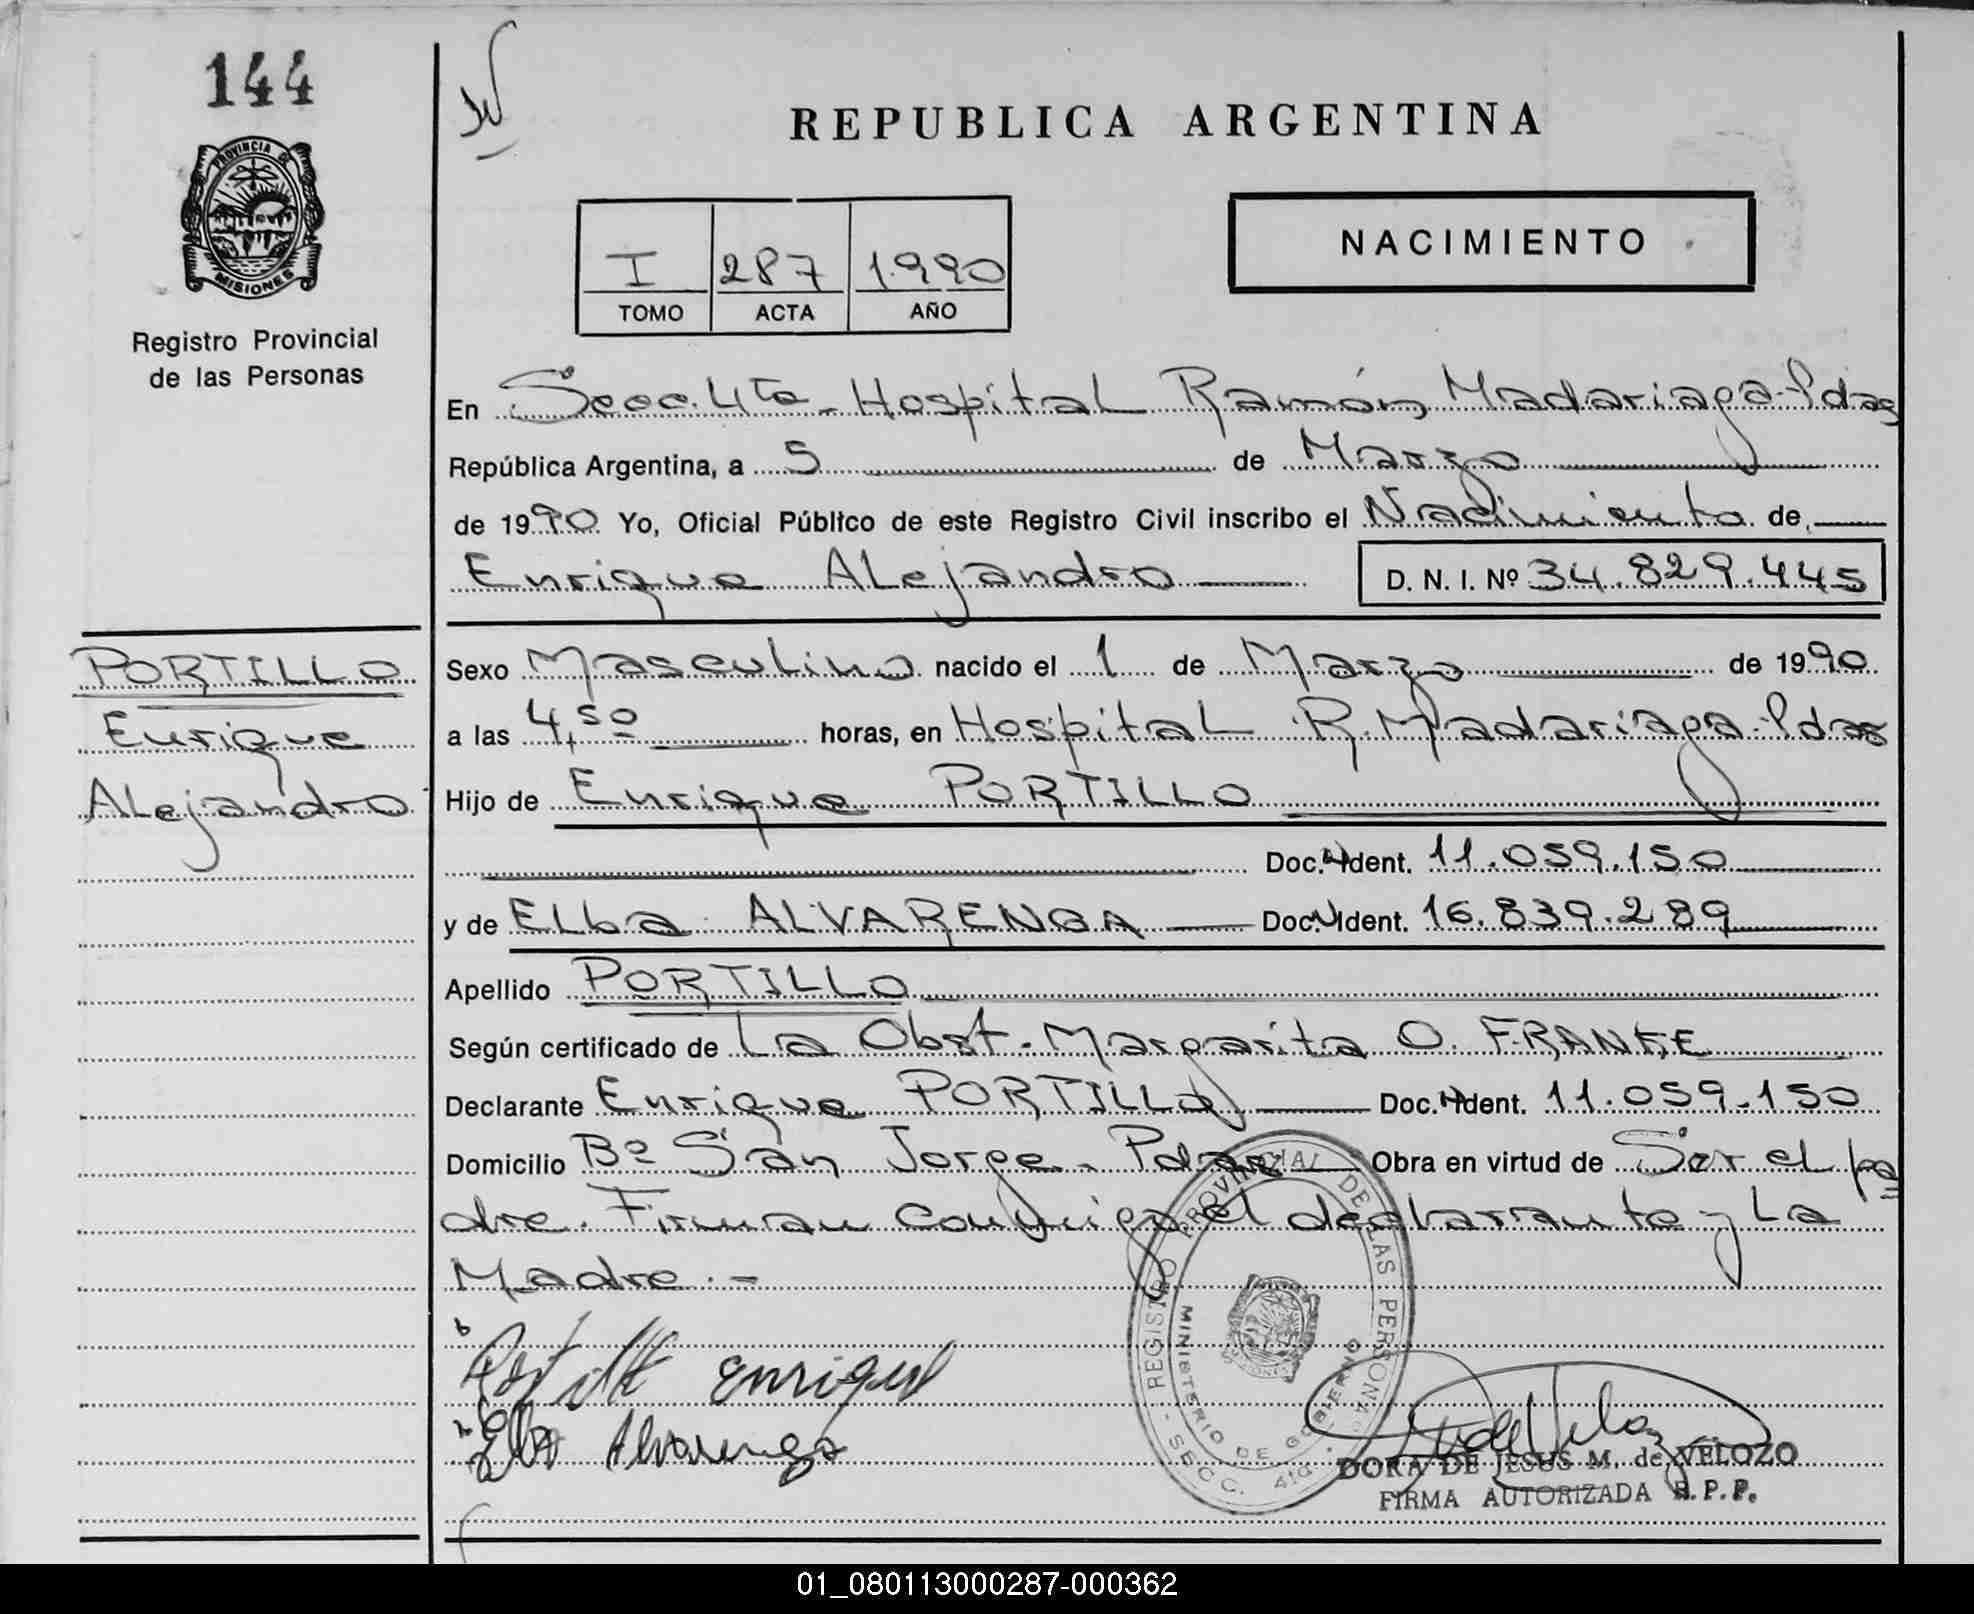 144
REPUBLICA ARGENTINA
PROVINCIA DE
MISIONES
NACIMIENTO
I 287 1990
TOMO ACTA AÑO
Registro Provincial
de las Personas
En Secc. 4ta - Hospital Ramón Madariaga - Pdas
República Argentina, a 5 de Marzo
de 1990 Yo, Oficial Público de este Registro Civil inscribo el Nacimiento de
Enrique Alejandro D. N. I. Nº 34.829.445
PORTILLO
Enrique
Alejandro
Sexo Masculino nacido el 1 de Marzo de 1990
a las 4,50 horas, en Hospital R. Madariaga - Pdas
Hijo de Enrique PORTILLO
Doc. Ident. 11.059.150
y de Elba ALVARENGA Doc. Ident. 16.839.289
Apellido PORTILLO
Según certificado de La Obst. Margarita O. FRANKE
Declarante Enrique PORTILLO Doc. Ident. 11.059.150
Domicilio Bº San Jorge - Pdas Obra en virtud de Ser el pa
dre. Firman conmigo el declarante y La
Madre. -
Portillo Enrique
Elba Alvarenga
REGISTRO PROVINCIAL DE LAS PERSONAS
MINISTERIO DE GOBIERNO
SECC. 4ta.
DORA DE JESUS M. de VELOZO
FIRMA AUTORIZADA R. P. P.
01_080113000287-000362